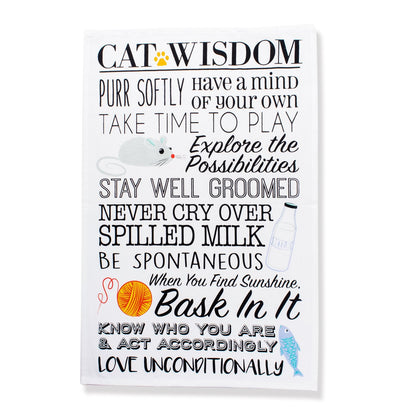 CAT WISDOM
PURR SOFTLY Have a mind
of your own
TAKE TIME TO PLAY
Explore the
Possibilities
STAY WELL GROOMED
NEVER CRY OVER
SPILLED MILK
BE SPONTANEOUS
When You Find Sunshine,
Bask In It
KNOW WHO YOU ARE
& ACT ACCORDINGLY
LOVE UNCONDITIONALLY